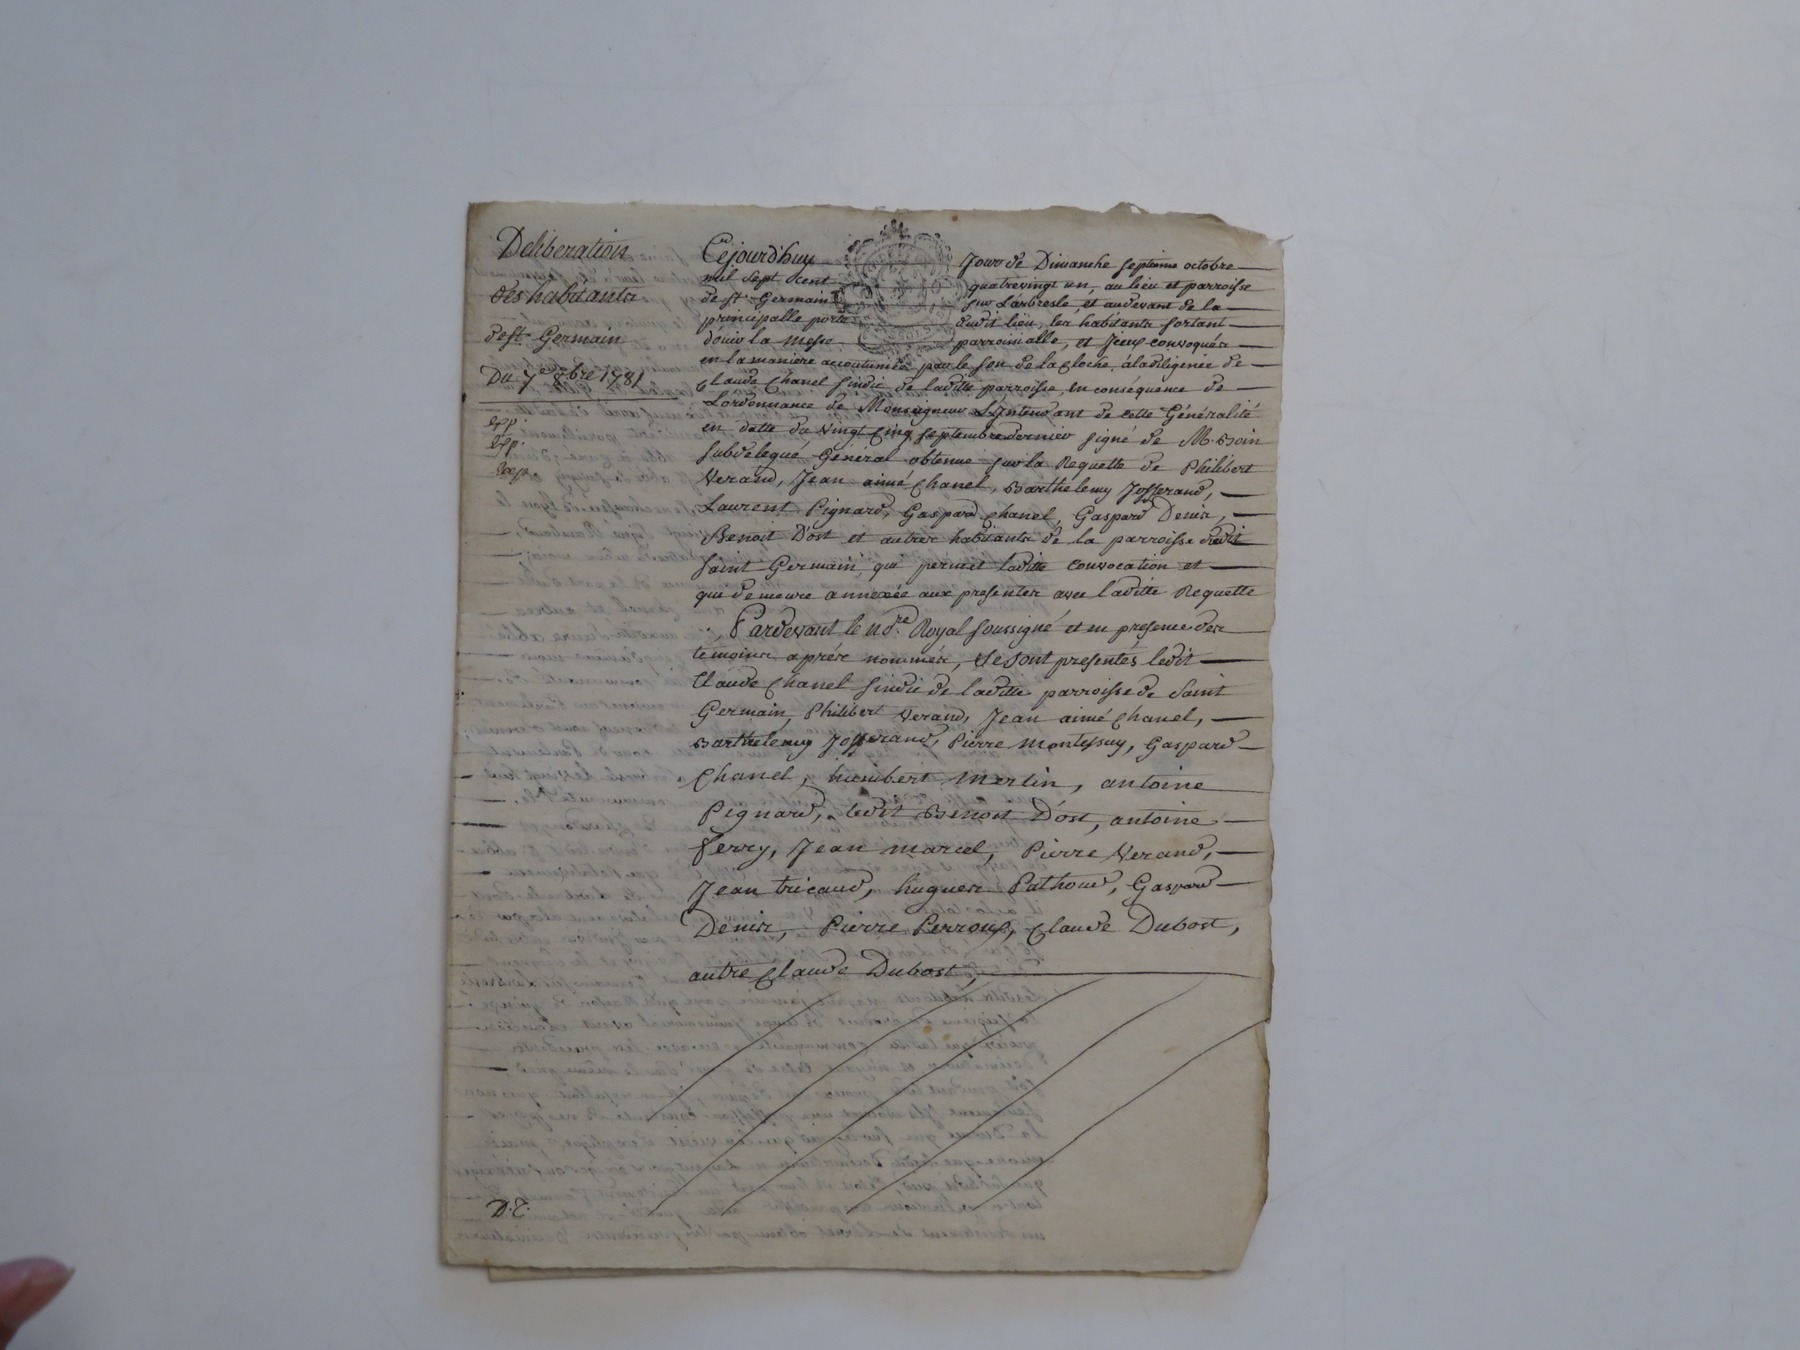 Deliberation
des habitants
de st Germain
Du 7e 8bre 1781
exp.
exp.
exp.
Cejourd'huy Jour de Dimanche septieme octobre
mil sept cent quatrevingt un, au lieu et parroisse
de st Germain sur Larbresle, et audevant de la
principalle porte dudit lieu, les habitants sortant
d'ouir la messe parroissialle, et Iceux convoqués
en la maniere accoutumée par le son de la cloche, à la diligence de
Claude Chanel sindic de laditte parroisse, en conséquence de
Lordonnance de Monseigneur L'Intendant de cette Généralité
en datte du vingt cinq septembre dernier signé de M. Boin
subdélegué Général obtenue sur la Requette de Philibert
Verand, Jean aimé Chanel, Barthélemy Josserand,
Laurent Pignard, Gaspard Chanel, Gaspard Denis,
Benoit D'ost et autres habitants de la parroisse dudit
Saint Germain, qui permet laditte convocation et
qui demeure annexée aux presentes avec laditte Requette
Pardevant le nore Royal soussigné et en presence des
temoins après nommés, se sont presentés ledit
Claude Chanel sindic de laditte parroisse de Saint
Germain, Philibert Verand, Jean aimé Chanel,
Barthelemy Josserand, Pierre Montessuy, Gaspard
Chanel, humbert Merlin, antoine
Pignard, ledit Benoit D'ost, antoine
ferry, Jean marcel, Pierre Verand,
Jean tricaud, hugues Pathoud, Gaspard
Denis, Pierre Perroux, Claude Dubost,
autre Claude Dubost,
D.C.